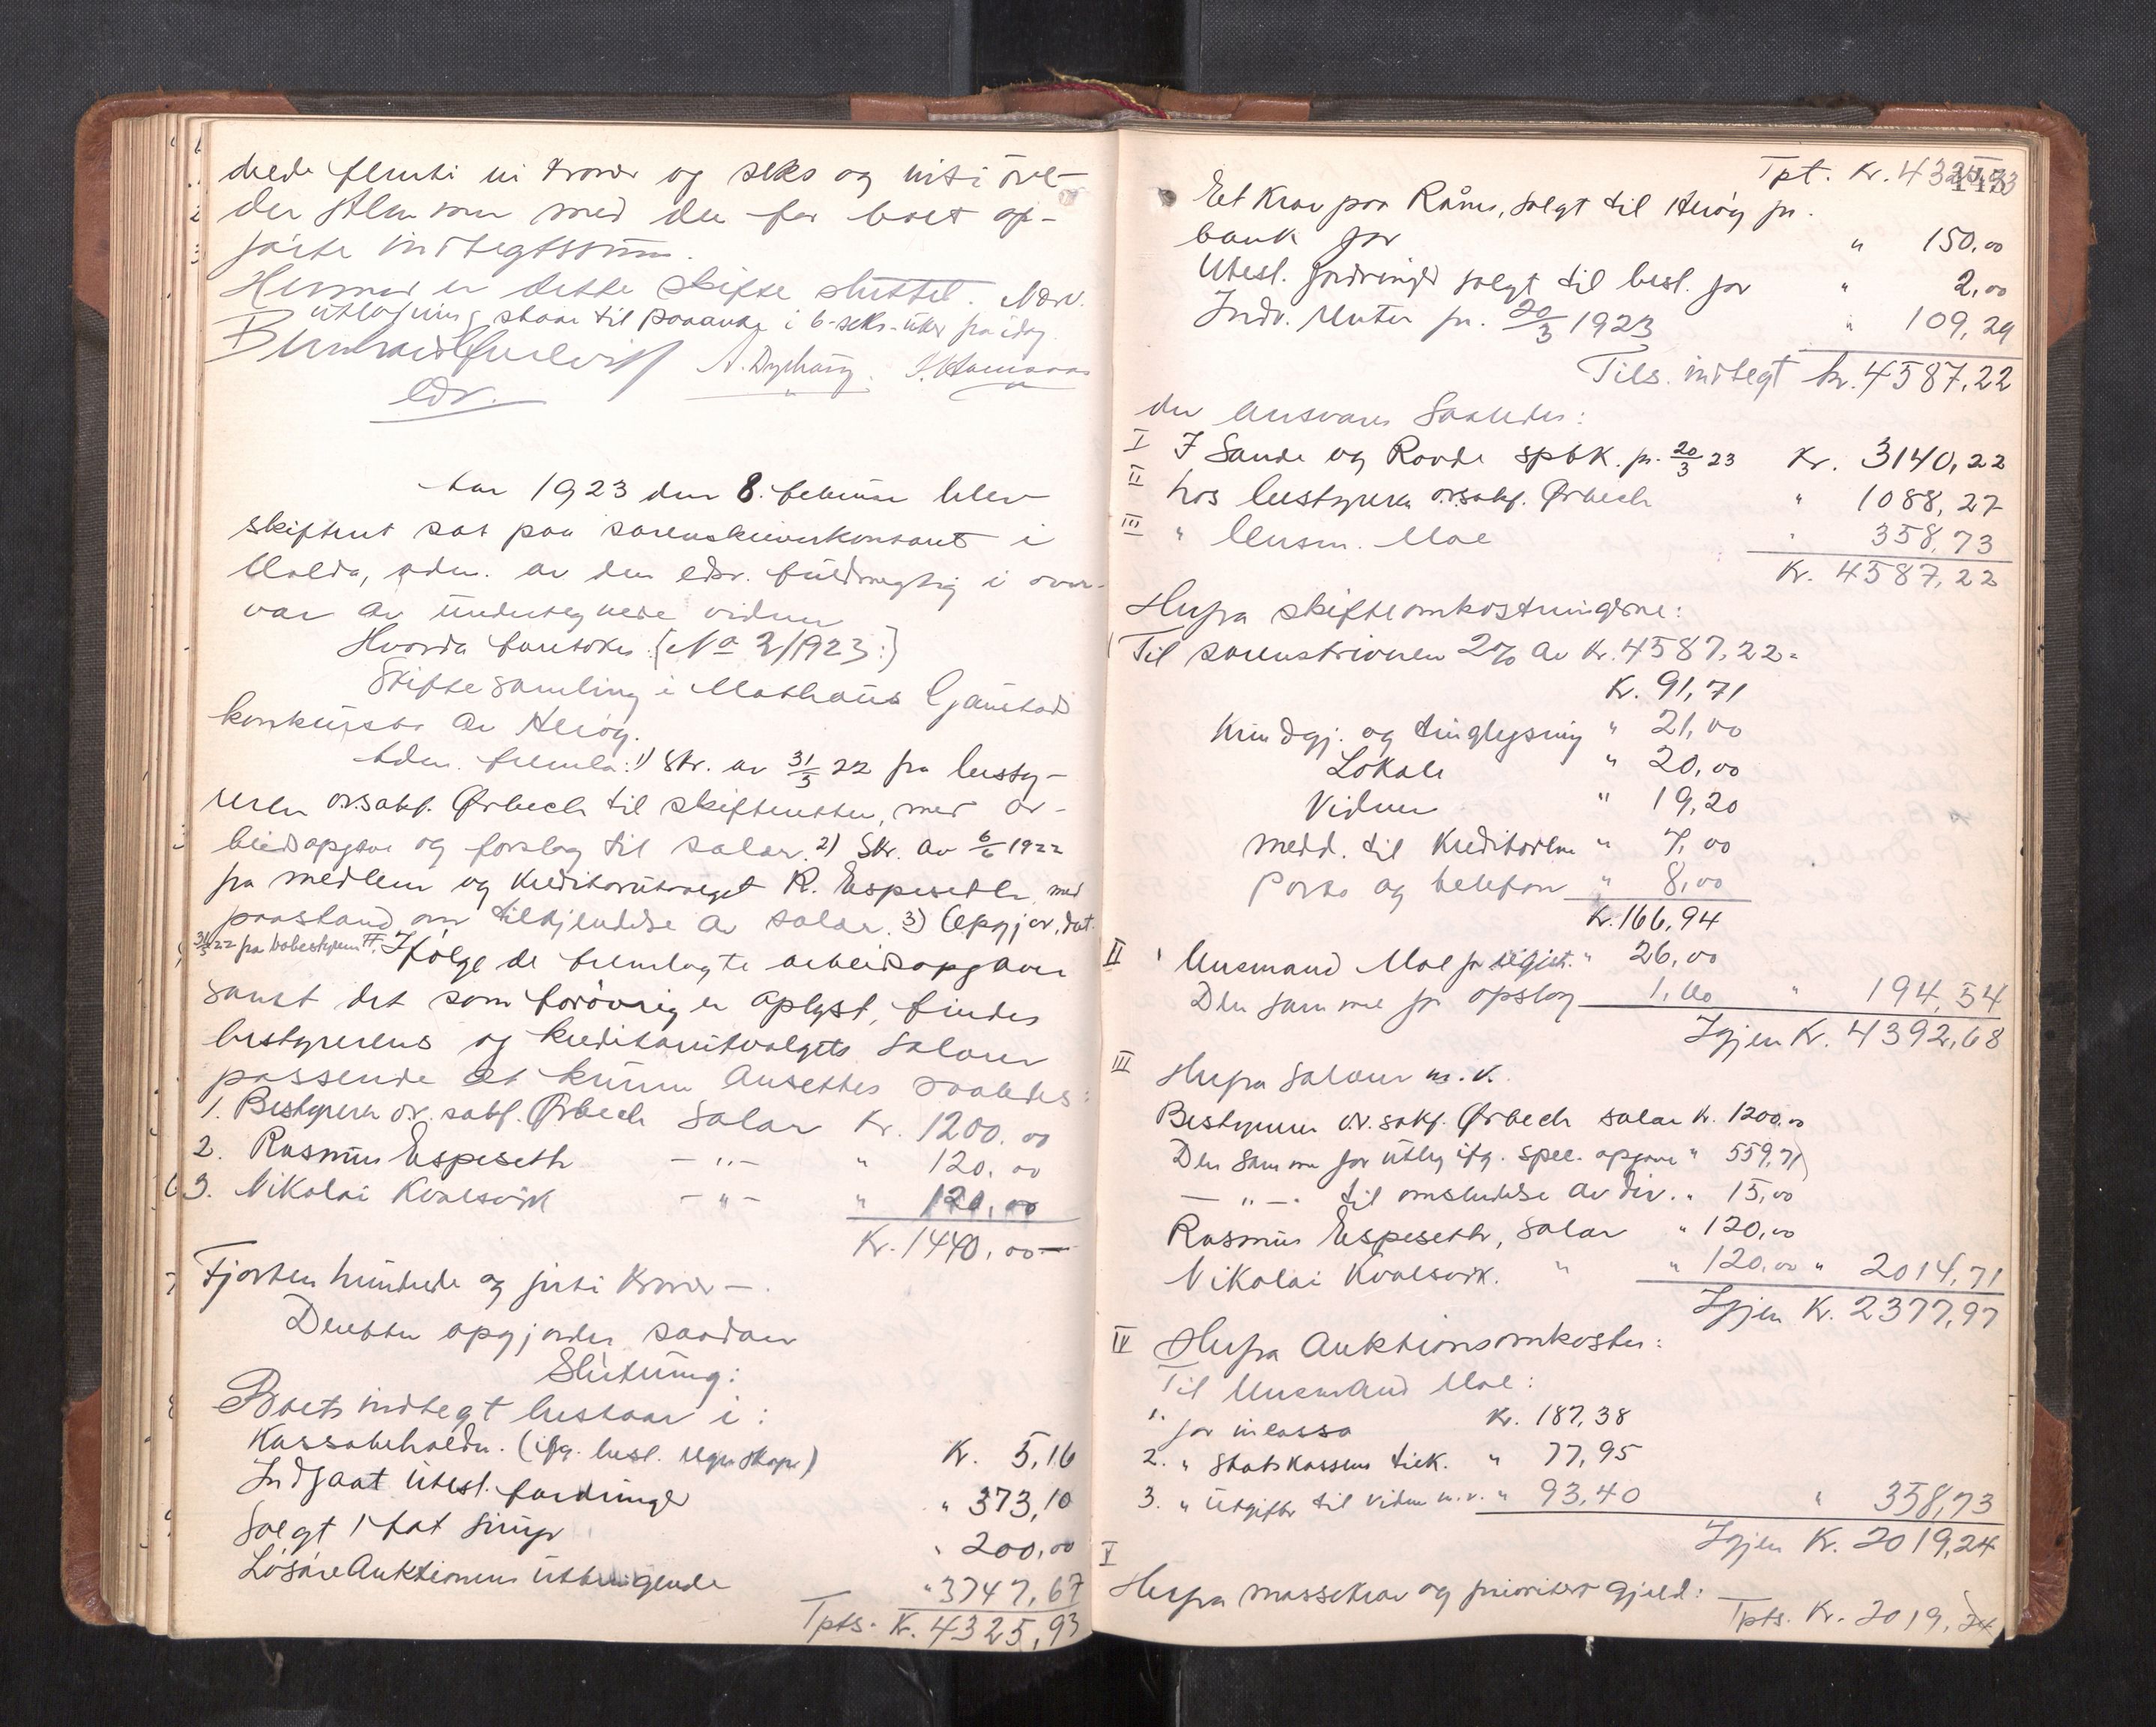 drede femti ni kroner og seks og niti øre
der stemmer med den for boet op-
førte indtegtssum.
Hermed er dette skifte sluttet. Nærv.
utlodning staar til paaanke i 6-seks-uker fra idag.
edv.
Aar 1923 den 8. februar blev
skifteret sat paa sorenskriverkontoret i
Volda, adm. av den edsv. fuldmegtig i over-
vær av undertegnede vidner
Hvorda foretokes: {No 2/1923:}
Skiftesamling i Mathæus Gjærtsds
konkursbo av Herøy.
Adm. fremla: 1) Skr. av 31/5 22 fra besty-
reren o.r.sakf. Ørbech til skifteretten, med ar-
beidsopgave og forslag til salær. 2) Skr. av 6/6 1922
fra medlem og kreditorutvalget R. Espeseth med
paastand om tilkjendelse av salær. 3) Opgjør, dat.
31/5 22 fra bobestyreren. Ifølge de fremlagte arbeidsopgaver
samt det som forøvrig er oplyst, findes
bestyrerens og kreditorutvalgets salærer
passende at kunne ansettes saaledes:
1. Bestyreren o.r.sakf. Ørbech Salær Kr. 1200.00
2. Rasmus Espeseth —"— " 120.00
3. Nikolai Kvalsvik —"— " 120,00
Kr. 1440,00—
Fjorten hundrede og firti kroner—.
Derefter opgjordes saadan
Slutning:
Boets indtegt bestaar i:
Kassabeholdn. (ifg. best. regnskap) Kr. 5,16
Indgaat utest. fordringer " 373,10
Solgt 1 fat sirup " 200,00
Løsøreauktionens utbringende " 3747,67
Tpts. Kr. 4325,93
Tpt. Kr. 4325,93
Et Krav paa Råns, solgt til Herøy pr.
bank for " 150,00
Utest. fordringer solgt til best. for " 2,00
Indv. renter pr. 20/3 1923 " 109,29
Tils. indtegt kr. 4587,22
der ansvares saaledes:
I I Sande og Rovde spbk. pr. 20/3 23 Kr. 3140,22
II hos bestyreren o.r.sakf. Ørbech " 1088,27
III " lensm. Moe " 358,73
Kr. 4587,22
Herfra skifteomkostningerne:
Til sorenskriveren 2% av kr. 4587,22 =
Kr. 91,71
Kundgj. og tinglysning " 21,00
Lokale " 20,00
Vidner " 19,20
medd. til Kreditorene " 7,00
Porto og telefon " 8,00
Kr. 166,94
II Lensmand Moe for registr. " 26,00
Den samme for opslag 1,60 " 194,54
Igjen Kr. 4392,68
III Herfra Salærer m.v.
Bestyreren o.r.sakf. Ørbech salær Kr. 1200,00
Den samme for utlæg ifg. spec. opgave " 559,71
—"— til omsendelse av div. " 15,00
Rasmus Espeseth, salær " 120,00
Nikolai Kvalsvik. " " 120,00 " 2014,71
Igjen Kr. 2377,97
IV Herfra Auktionsomkostn:
Til lensmand Moe:
1. for incasso Kr. 187,38
2. " Statskassens tilk. " 77,95
3. " Utgifter til vidner m.v. " 93,40 " 358,73
Igjen Kr. 2019,24
V
Herfra massekrav og prioritert gjeld:
Tpts. Kr. 2019,24